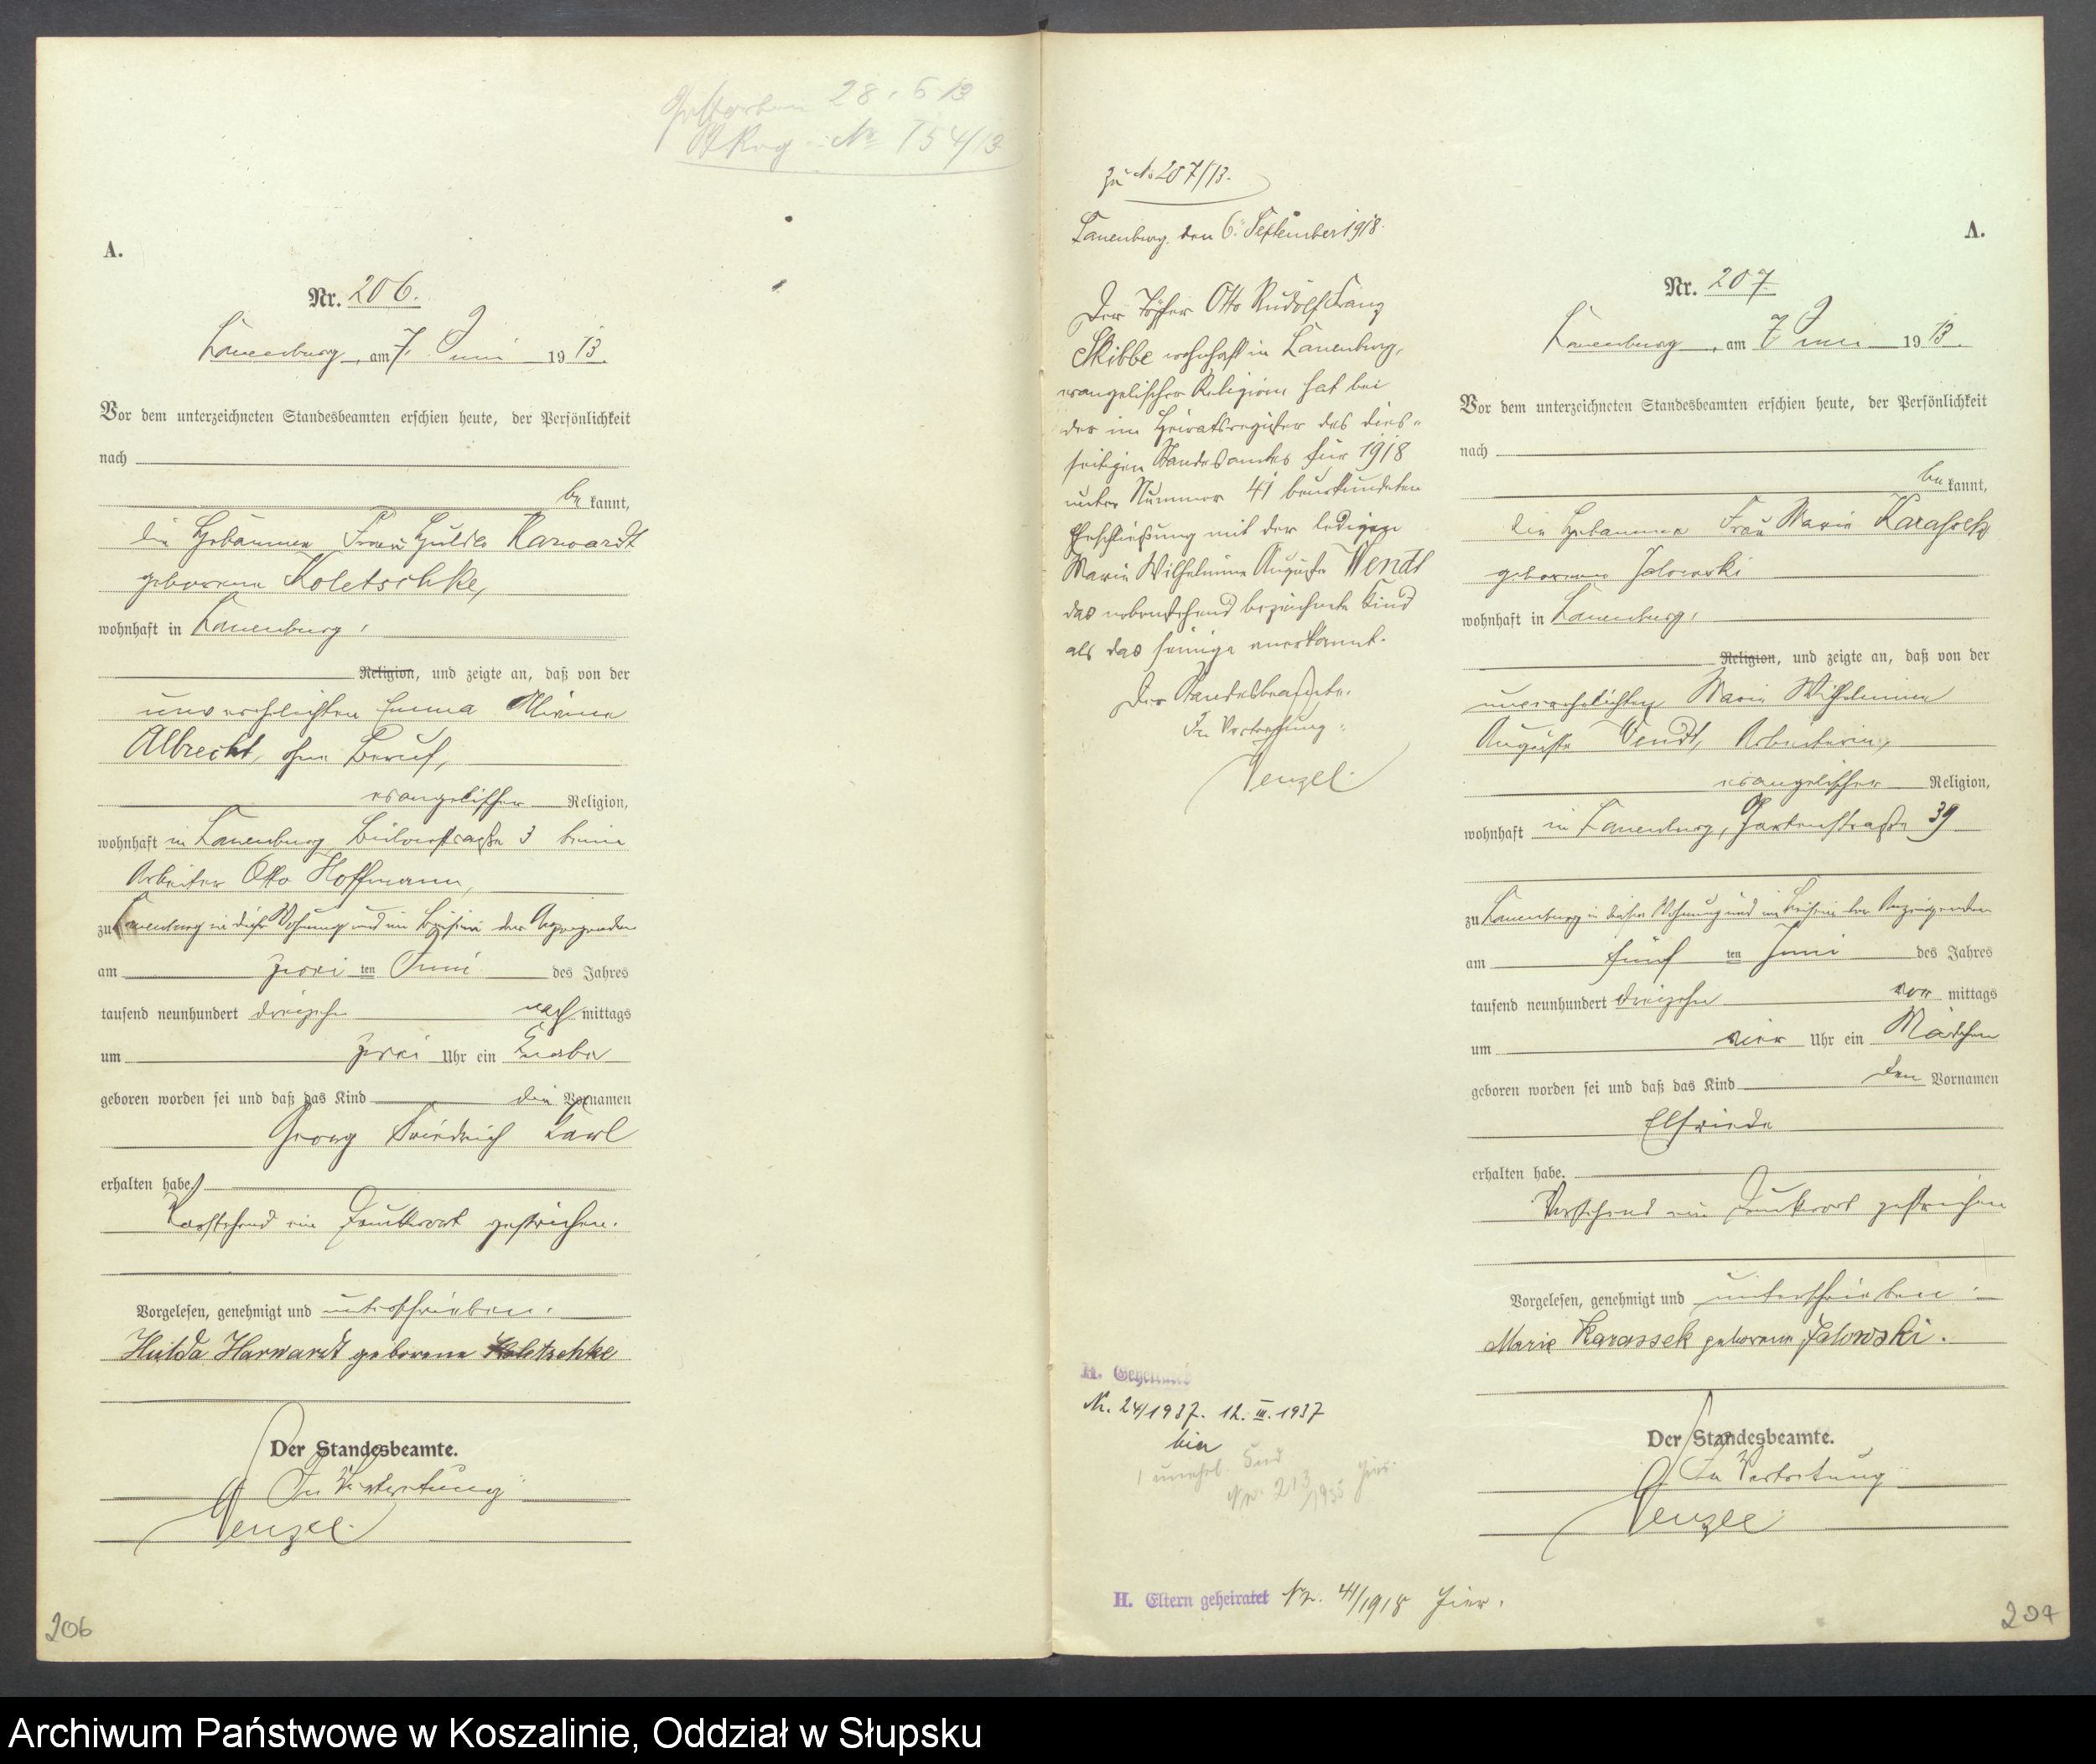 Gestorben 28. 6. 13
St. Reg. Nr 154/13
A.
Nr. 206.
Lauenburg, am 7. Juni 1913.
Vor dem unterzeichneten Standesbeamten erschien heute, der Persönlichkeit
nach
be kannt,
die Hebamme Frau Hulda Harwardt
geborene Koletschke,
wohnhaft in Lauenburg,
Religion, und zeigte an, daß von der
unverehelichten Emma
Albrecht, ohne Beruf,
evangelischer Religion,
wohnhaft in Lauenburg, Bülowstraße 3 beim
Arbeiter Otto Hoffmann,
zu Lauenburg in dieser Wohnung und im Beisein der Anzeigenden
am zwei ten Juni des Jahres
tausend neunhundert dreizehn nach mittags
um zwei Uhr ein Knabe
geboren worden sei und daß das Kind die Vornamen
Georg Friedrich Karl
erhalten habe.
Vorstehend ein Druckwort gestrichen.
Vorgelesen, genehmigt und unterschrieben.
Hulda Harwardt geborene Koletschke
Der Standesbeamte.
In Vertretung
Wenzel.
206
zu No 207/13.
Lauenburg, den 6. September 1918.
Der Töpfer Otto Rudolf Franz
Skibbe wohnhaft in Lauenburg,
evangelischer Religion hat bei
der im Heiratsregister des dies-
seitigen Standesamtes für 1918
unter Nummer 41 beurkundeten
Eheschließung mit der ledigen
Marie Wilhelmine Auguste Wendt
das nebenstehend bezeichnete Kind
als das seinige anerkannt.
Der Standesbeamte.
In Vertretung:
Wenzel.
Nr. 24/1937. 12. III. 1937
hier
1 unehel. Kind
Nr. 213/1935 hier.
H. Eltern geheiratet Nr. 41/1918 hier.
A.
Nr. 207
Lauenburg, am 7 Juni 1913.
Vor dem unterzeichneten Standesbeamten erschien heute, der Persönlichkeit
nach
be kannt,
die Hebamme Frau Marie Karassek
geborene Jalowski
wohnhaft in Lauenburg,
Religion, und zeigte an, daß von der
unverehelichten Marie Wilhelmine
Auguste Wendt, Arbeiterin,
evangelischer Religion,
wohnhaft in Lauenburg, Gartenstraße 39
zu Lauenburg in dieser Wohnung und im Beisein der Anzeigenden
am fünf ten Juni des Jahres
tausend neunhundert dreizehn vor mittags
um vier Uhr ein Mädchen
geboren worden sei und daß das Kind den Vornamen
Elfriede
erhalten habe.
Vorstehend ein Druckwort gestrichen
Vorgelesen, genehmigt und unterschrieben.
Marie Karassek geborene Jalowski.
Der Standesbeamte.
In Vertretung
Wenzel.
207
Archiwum Państwowe w Koszalinie, Oddział w Słupsku